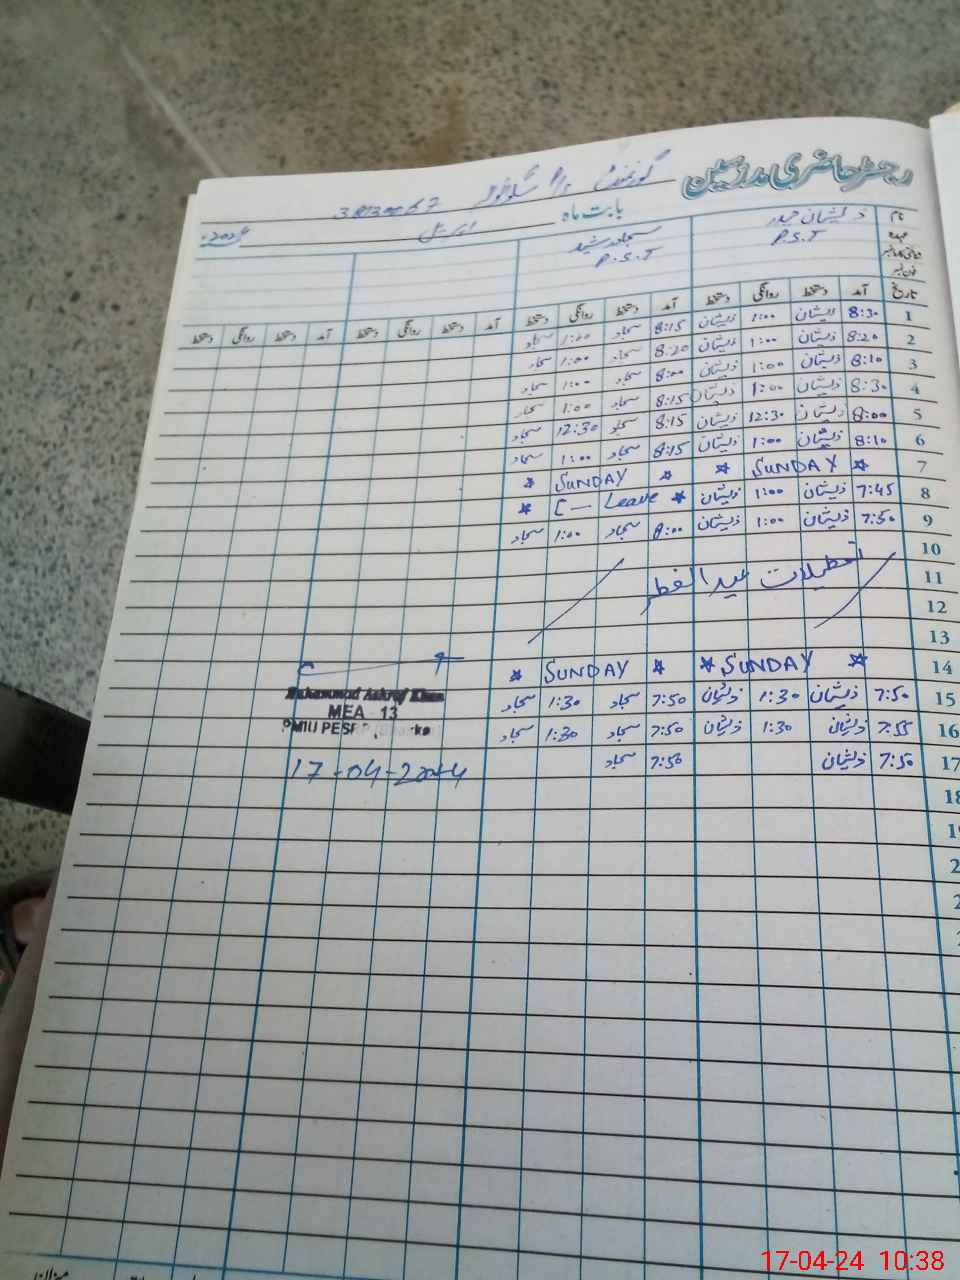 رجسٹر حاضری مدرسین
گورنمنٹ
بابت ماہ اپریل 2024
نام ذیشان حیدر سجاد رشید
عہدہ P.S.T P.S.T
فون نمبر
تاریخ آمد دستخط روانگی دستخط آمد دستخط روانگی دستخط آمد دستخط روانگی دستخط آمد دستخط روانگی دستخط
1 8:30 ذیشان 1:00 ذیشان 8:15 سجاد 1:00 سجاد
2 8:20 ذیشان 1:00 ذیشان 8:20 سجاد 1:00 سجاد
3 8:10 ذیشان 1:00 ذیشان 8:00 سجاد 1:00 سجاد
4 8:30 ذیشان 1:00 ذیشان 8:15 سجاد 1:00 سجاد
5 8:00 ذیشان 12:30 ذیشان 8:15 سجاد 12:30 سجاد
6 8:10 ذیشان 1:00 ذیشان 8:15 سجاد 1:00 سجاد
7 * SUNDAY * * SUNDAY *
8 7:45 ذیشان 1:00 ذیشان * C - Leave *
9 7:50 ذیشان 1:00 ذیشان 8:00 سجاد 1:00 سجاد
10
11 تعطیلات عید الفطر
12
13
14 * SUNDAY * * SUNDAY *
15 7:50 ذیشان 1:30 ذیشان 7:50 سجاد 1:30 سجاد
16 7:55 ذیشان 1:30 ذیشان 7:50 سجاد 1:30 سجاد
17 7:50 ذیشان 7:50 سجاد
18
Muhammad Ashraf Khan
MEA - 13
17-04-2024
میزان
17-04-24 10:38